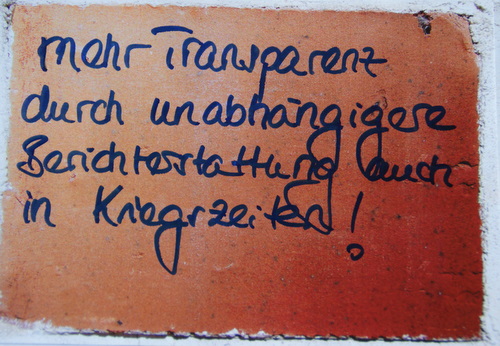 mehr Transparenz
durch unabhängigere
Berichterstattung auch
in Kriegszeiten!